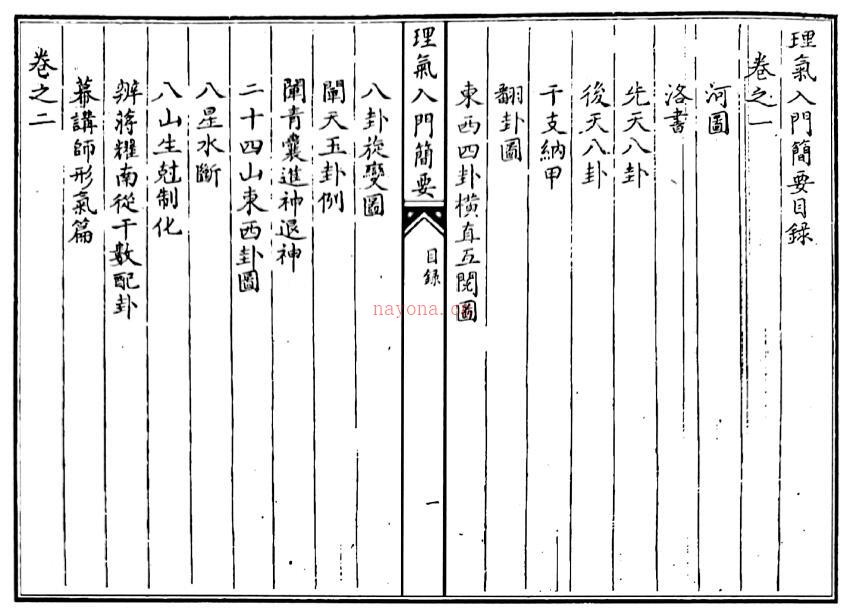 理氣入門簡要目錄
卷之一
河圖
洛書
先天八卦
後天八卦
干支納甲
翻卦圖
東西四卦橫直互閱圖
理氣入門簡要
目錄
一
八卦旋變圖
闡天玉卦例
闡青囊進神退神
二十四山東西卦圖
八星水斷
八山生尅制化
辨蔣耀南從干數配卦
幕講師形氣篇
卷之二